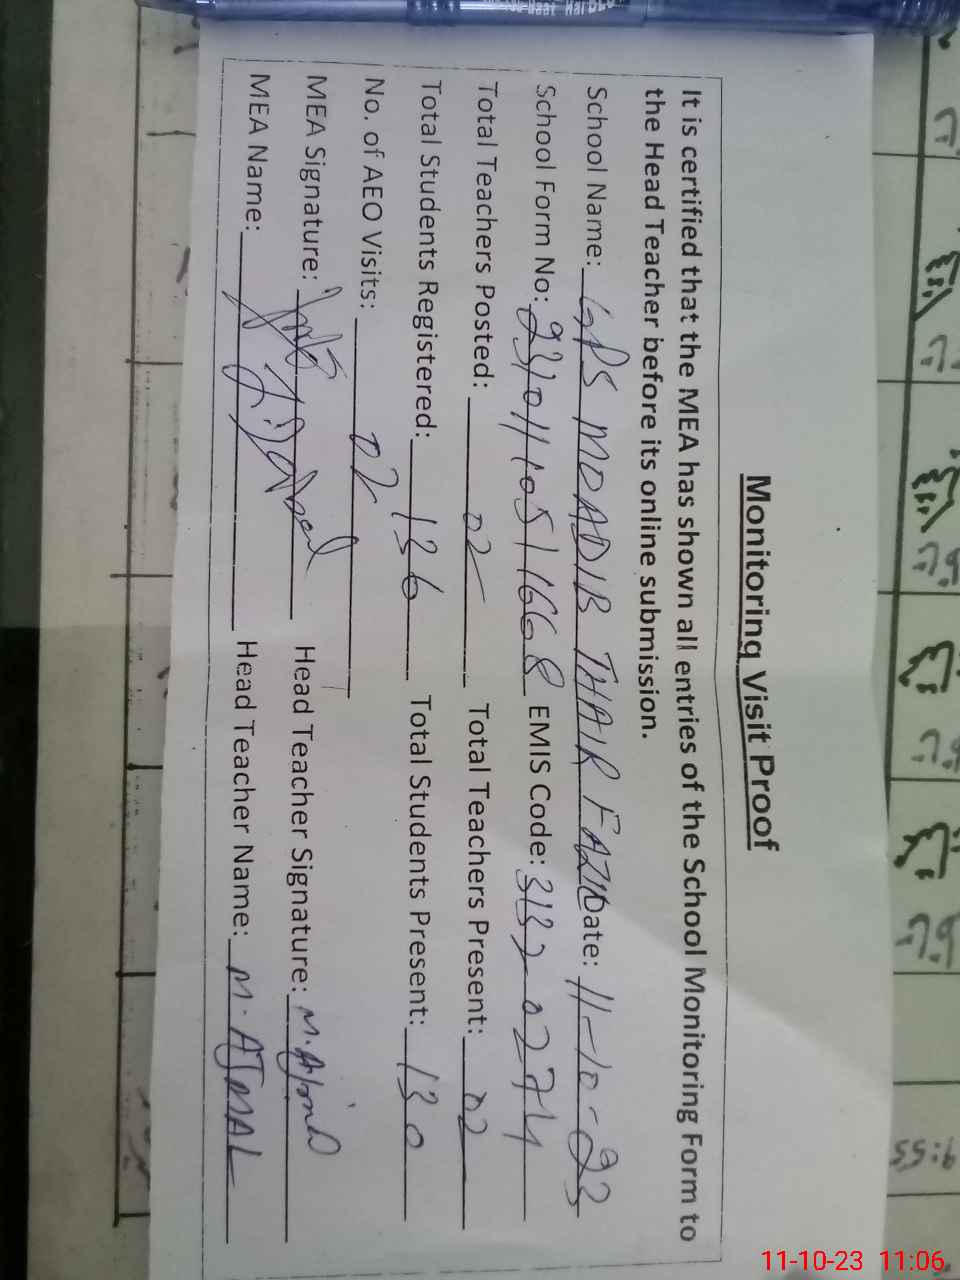 Monitoring Visit Proof
It is certified that the MEA has shown all entries of the School Monitoring Form to
the Head Teacher before its online submission.
School Name: GPS MOADIB THAIR FAZIL Date: 11-10-23
School Form No: 23101110511668 EMIS Code: 31320274
Total Teachers Posted: 02 Total Teachers Present: 02
Total Students Registered: 136 Total Students Present: 130
No. of AEO Visits: 02
MEA Signature: Head Teacher Signature: M. Ajmal
MEA Name: Head Teacher Name: M. AJMAL
9:55
11-10-23 11:06